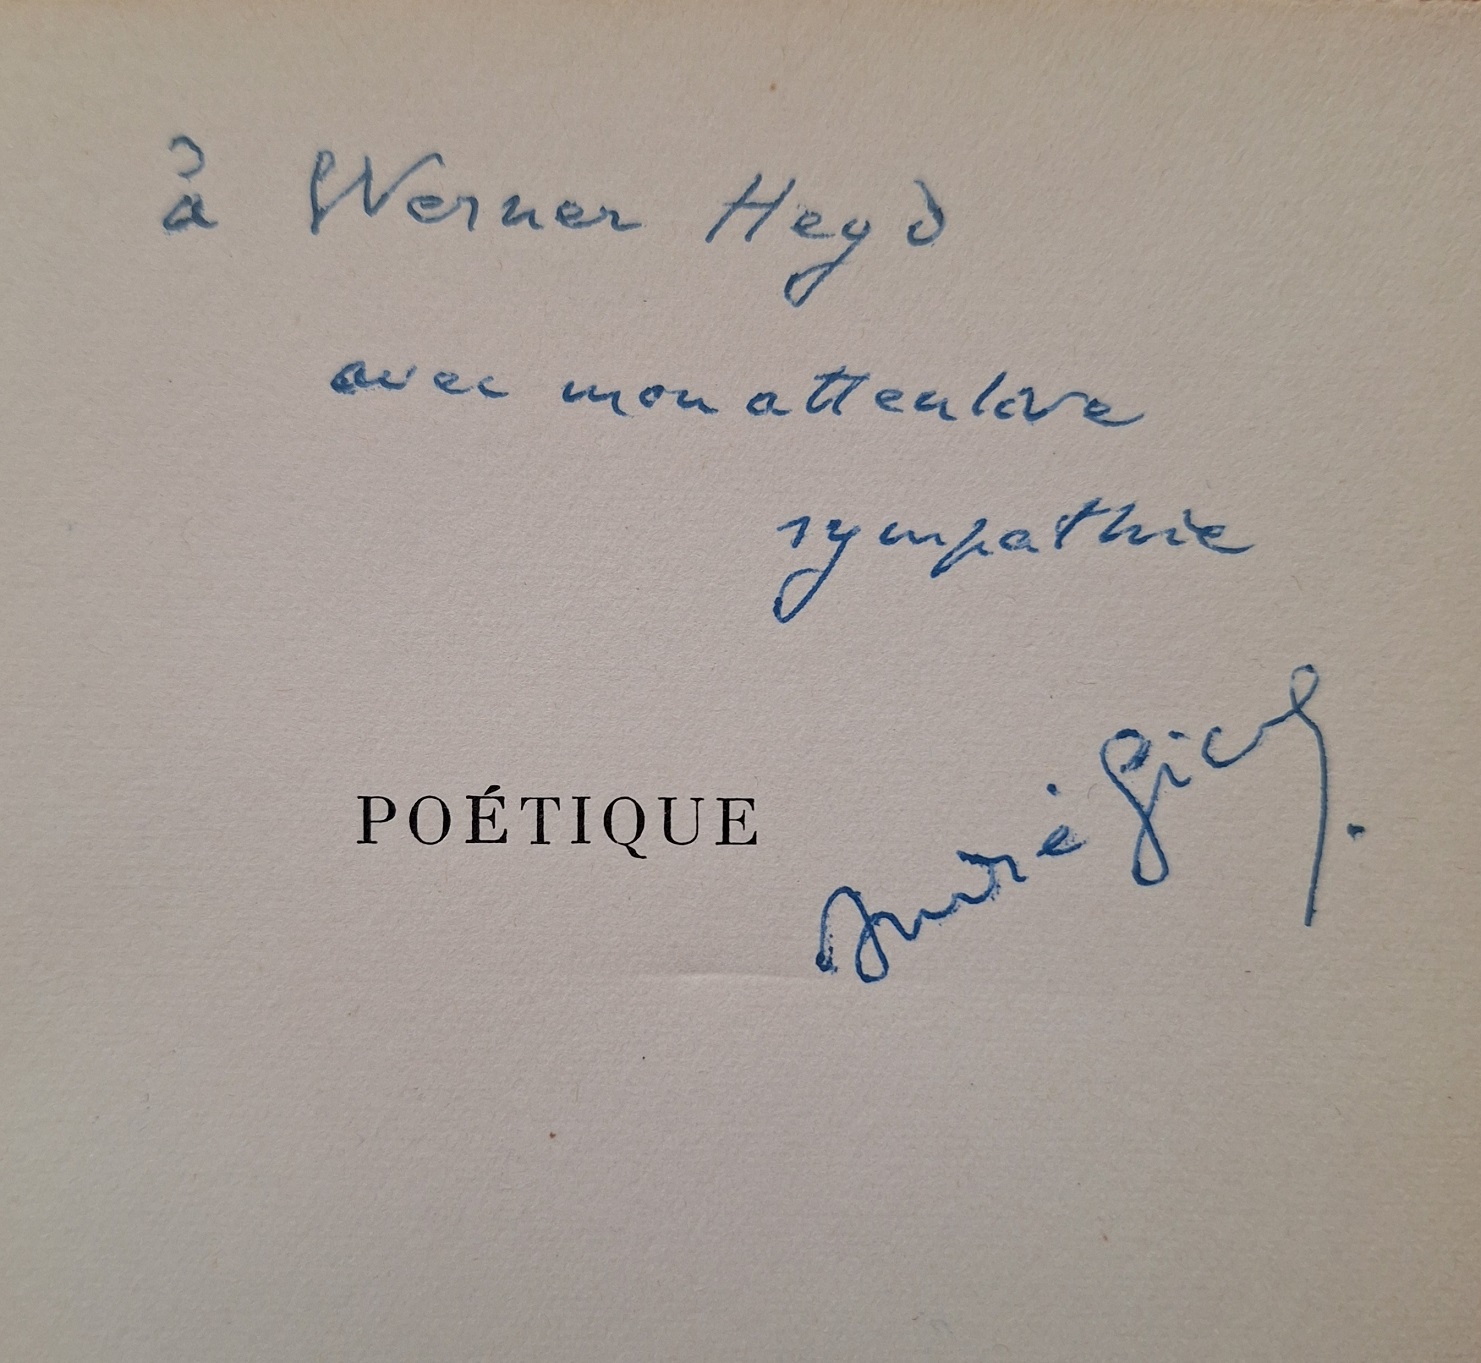 à Werner Heyd
avec mon attentive
sympathie
André Gide.
POÉTIQUE